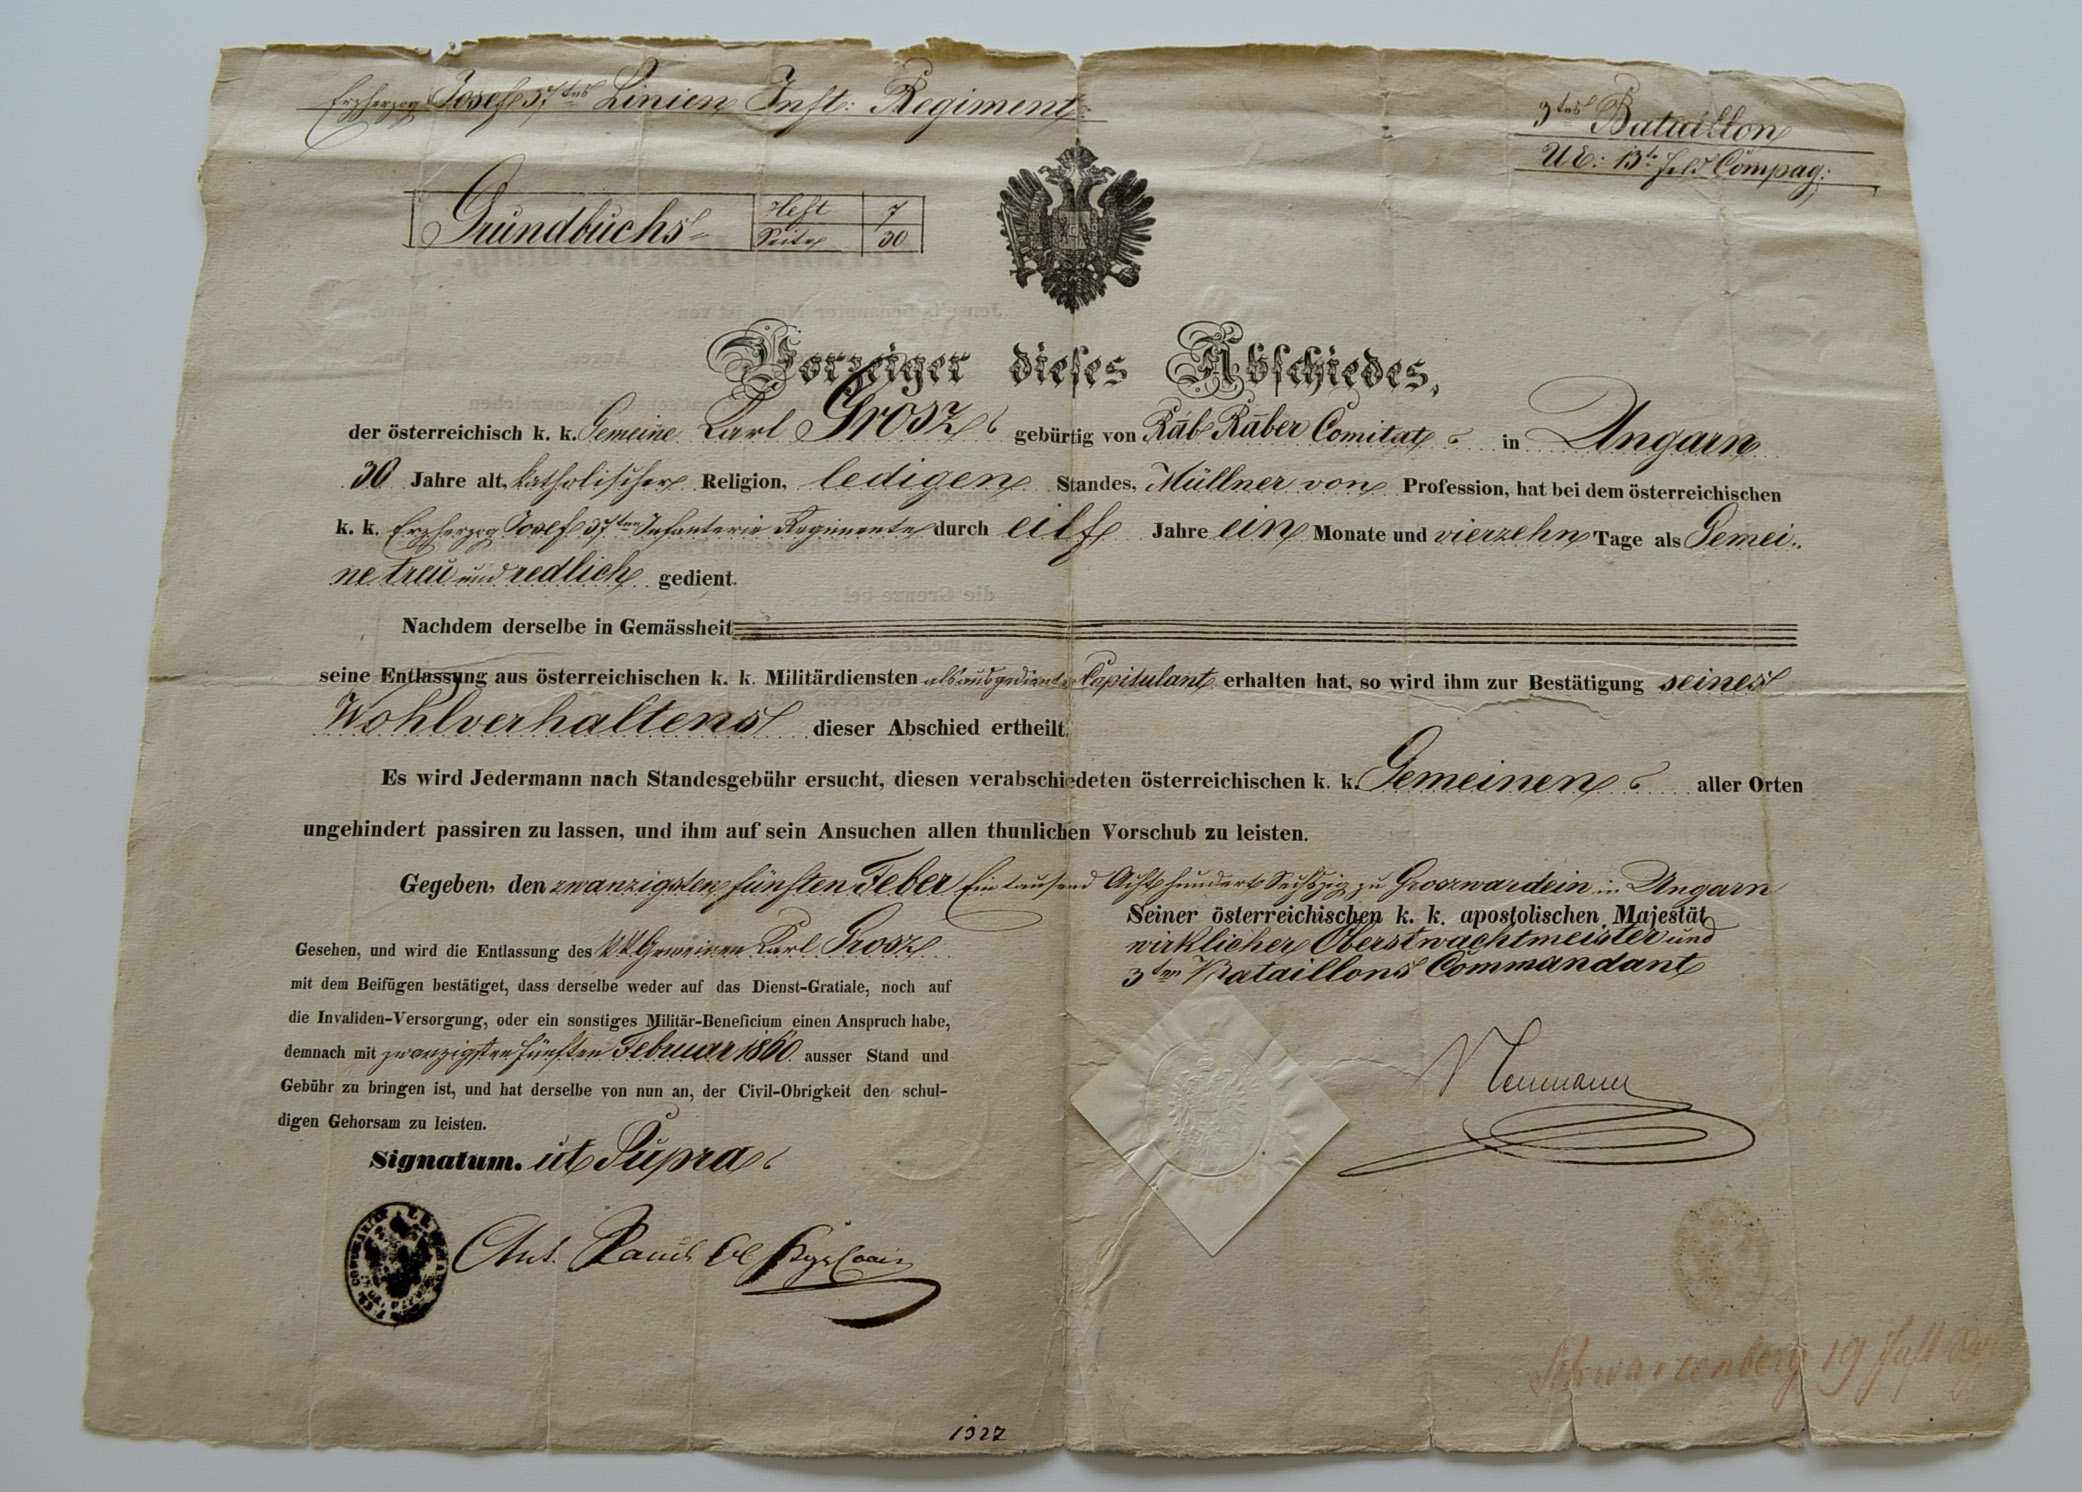 Erzherzog Josef 37tes Linien Inft: Regiment:
3tes Bataillon
13te Feld Compag:
Grundbuchs-
Heft 7
Seite 30
Vorzeiger dieses Abschiedes,
der österreichisch k. k. Gemeine Karl Grosz gebürtig von Rāb Rāber Comitat in Ungarn
30 Jahre alt, katholischer Religion, ledigen Standes, Müllner von Profession, hat bei dem österreichischen
k. k. Erzherzog Josef 37ten Infanterie Regimente durch eilf Jahre ein Monate und vierzehn Tage als Gemei-
ne treu und redlich gedient.
Nachdem derselbe in Gemässheit
seine Entlassung aus österreichischen k. k. Militärdiensten als ausgedienter Kapitulant erhalten hat, so wird ihm zur Bestätigung seines
Wohlverhaltens dieser Abschied ertheilt.
Es wird Jedermann nach Standesgebühr ersucht, diesen verabschiedeten österreichischen k. k. Gemeinen aller Orten
ungehindert passiren zu lassen, und ihm auf sein Ansuchen allen thunlichen Vorschub zu leisten.
Gegeben, den zwanzigsten fünften Feber Ein tausend Acht hundert Sechszig zu Groszwardein in Ungarn
Seiner österreichischen k. k. apostolischen Majestät
wirklicher Oberstwachtmeister und
3ten Bataillons Commandant
Neumann
Gesehen, und wird die Entlassung des kk Gemeinen Karl Grosz
mit dem Beifügen bestätiget, dass derselbe weder auf das Dienst-Gratiale, noch auf
die Invaliden-Versorgung, oder ein sonstiges Militär-Beneficium einen Anspruch habe,
demnach mit zwanzigsten fünften Februar 1860 ausser Stand und
Gebühr zu bringen ist, und hat derselbe von nun an, der Civil-Obrigkeit den schul-
digen Gehorsam zu leisten.
Signatum. ut Supra
Ant.
Schwartzenberg 19
1327